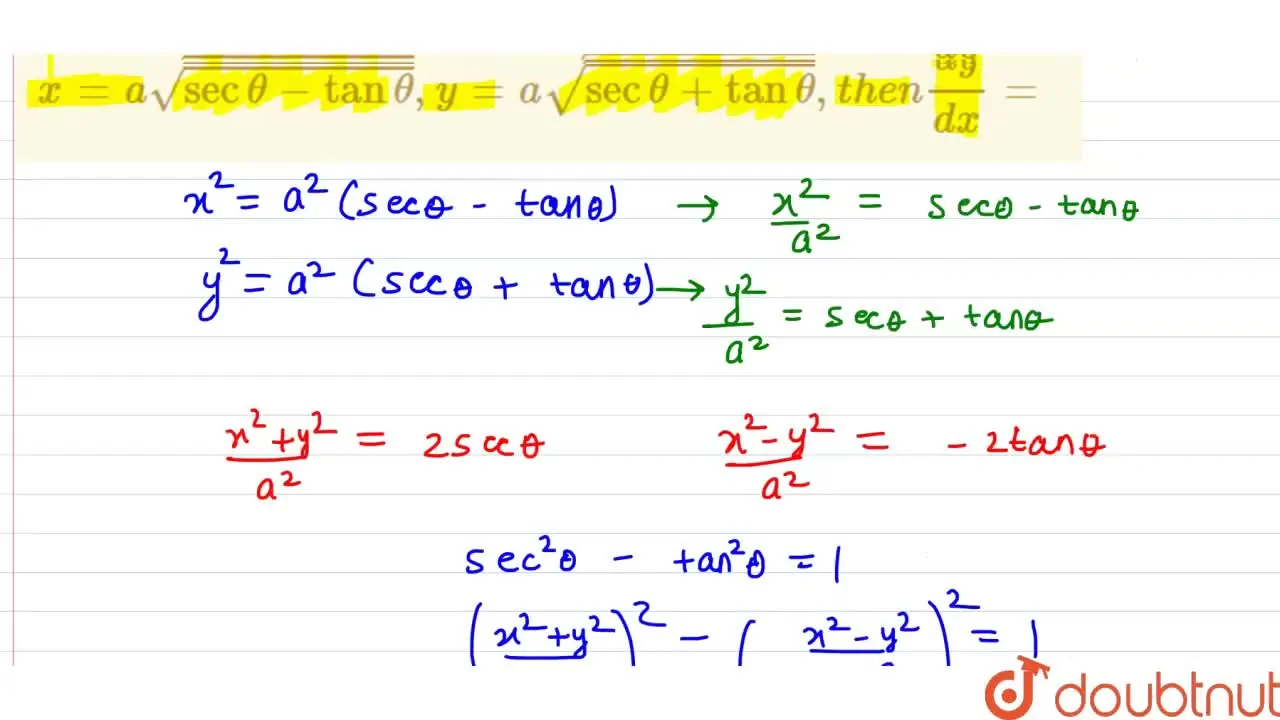 x = a√(sec θ − tan θ), y = a√(sec θ + tan θ), then dy/dx =
x² = a² (secθ - tanθ) → x²/a² = secθ - tanθ
y² = a² (secθ + tanθ) → y²/a² = secθ + tanθ
x²+y²/a² = 2secθ x²-y²/a² = -2tanθ
sec²θ - tan²θ = 1
(x²+y²)² - (x²-y²)² = 1
doubtnut